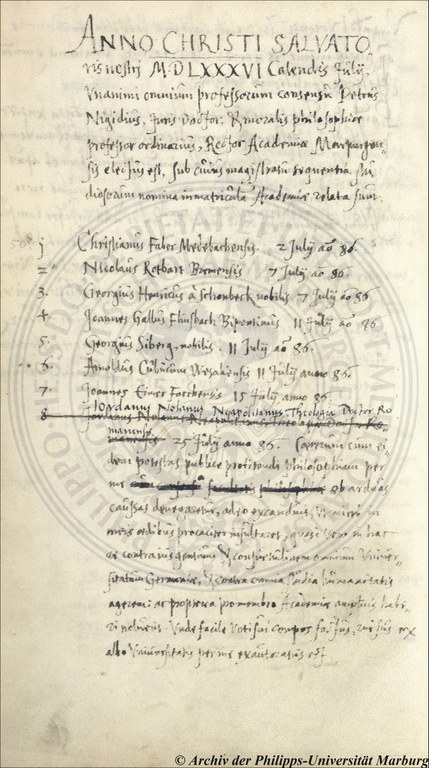 ANNO CHRISTI SALVATO
ris nostri M.D.LXXXVI Calendis Julij,
Vnanimi omnium professorum consensu Petrus
Nigidius, Juris Doctor, & moralis philosophiae
professor ordinarius, Rector Academiae Marpurgen-
sis electus est, sub cuius magistratu sequentia stu
diosorum nomina in matricula Academiae relata sunt.
j Christianus Faber Medebachensis. 2 Julij ao 86.
2 Nicolaus Bremensis 7 Julij ao 86.
3. Georgius Henricus à Schonbeck nobilis 7 Julij ao 86
4. Joannes Gallus Bipontinus 11 Julij ao 86.
5. Georgius Siberg, nobilis. 11 Julij ao 86.
6. Arnoldus Wesaliensis 11 Julij anno 86.
7. Joannes 15 Julij anno 86.
8 Jordanus Nolanus Neapolitanus Theologiae Doctor Ro
manensis
25 Julij anno 86. Cum ei
dem potestas publice profitendi Philosophiam per
me ob arduas
caussas denegaretur, adeo excanduit, ut mihi in
meis aedibus procaciter insultaret, quasi vero in hac
re contra ius gentium & consuetudinem omnium Univer
sitatum Germaniae, & contra omnia studia humanitatis
agerem: ac propterea pro membro Academiae amplius habe
ri noluerit. Unde facile voti sui compos factus, rursus ex
albo Universitatis per me exautoratus est.
© Archiv der Philipps-Universität Marburg